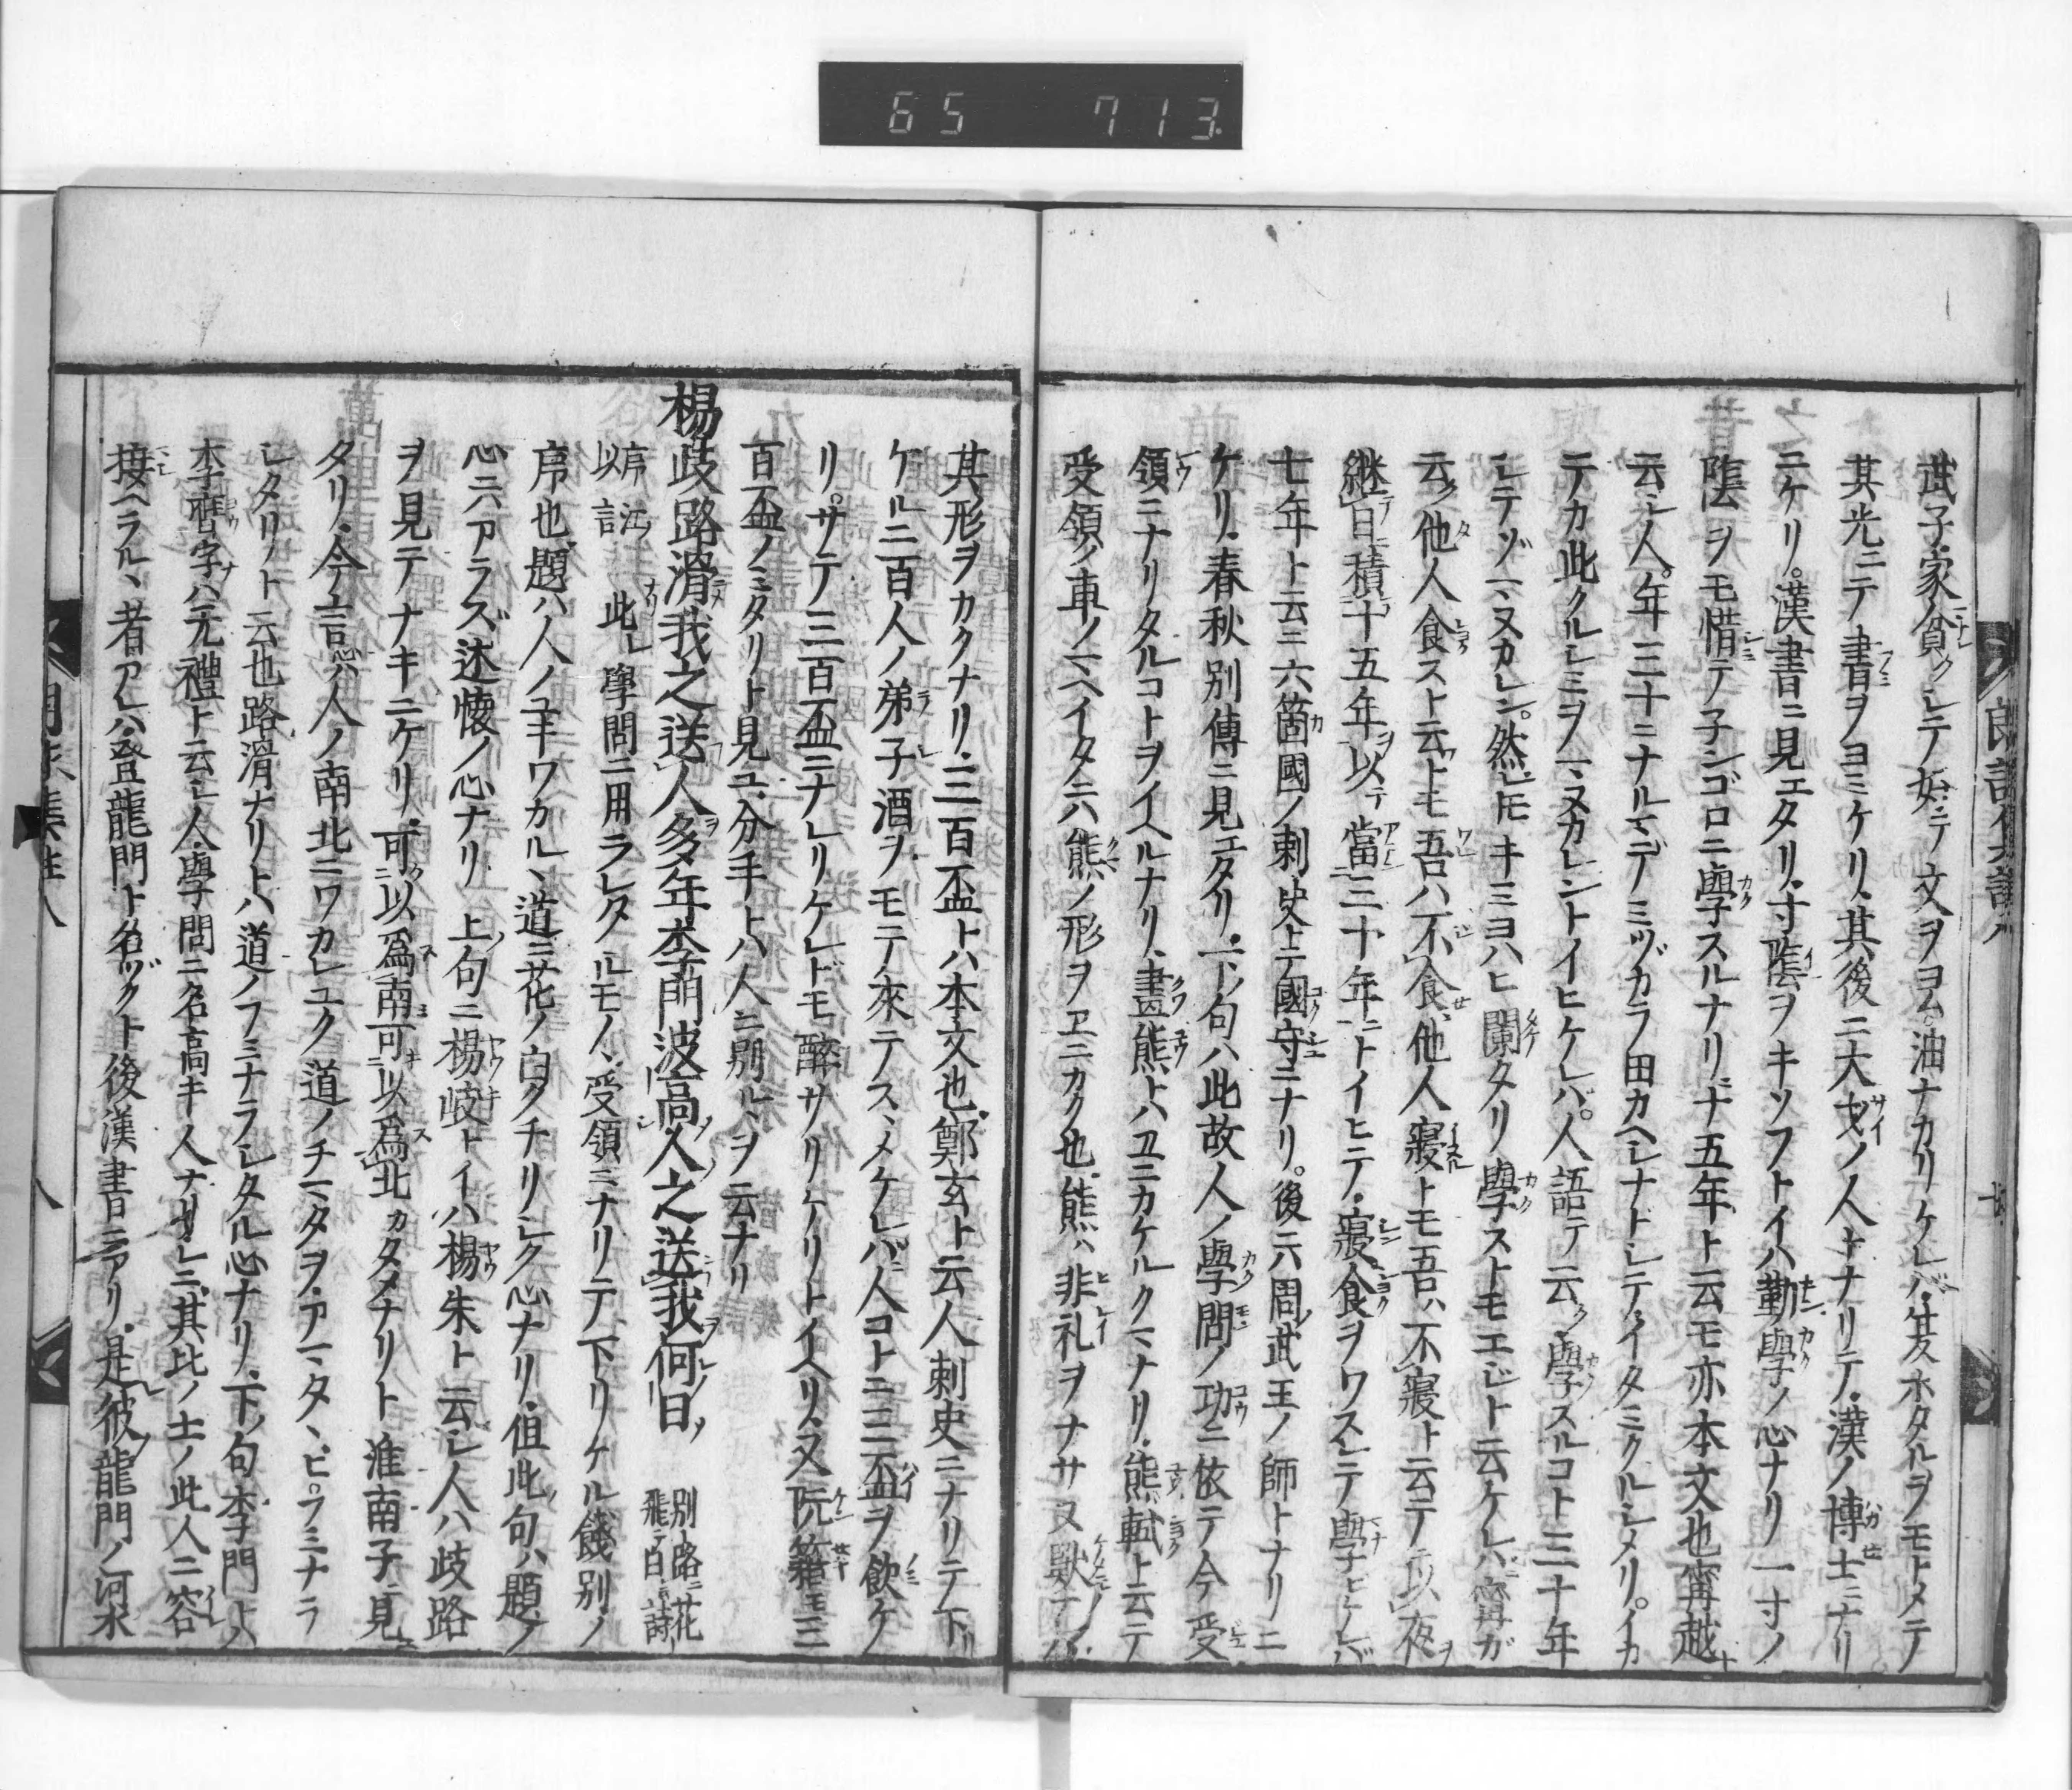 65 713
武子家貧クレテ始ニテ文ヲヨム油ナカリケレバ笈水タルヲモトメテ
其光ニテ書ヲヨミケリ其後ニ大才ノ人ナリテ漢ノ博士ニナリ
ニケリ漢書ニ見エタリ寸陰ヲキソフトイハ勤學ノ心ナリ一寸ノ
陰ヲモ惜テ子ンゴロニ學スルナリ十五年ト云モ亦本文也甯越ト
云シ人年三十ニナルマデミヅカラ田カヘシナドシテイタミクルシメリイカ
テカ此クルシミヲマヌカレントイヒケレバ人語テ云ク學スルコト三十年
シテゾマヌカレン然レドモキミヨハヒ闌タリ學ストモエジト云ケレバ甯ガ
云ク他人食ストモ吾ハ不食他人寢トモ吾ハ不寢ト云テ以夜ヲ
継日ニ積十五年ヲ以テ當三十年ニトイヒテ寢食ヲワスレテ學ヒシバ
七年ト云ニ六箇國ノ刺史上テ國守ニナリ後ニハ周武王ノ師トナリニ
ケリ春秋別傳ニ見エタリ下ノ句ハ此故人ノ學問ノ功ニ依テ今受
領ニナリタルコトヲイヘルナリ畫熊トハエニカケルクマナリ熊軾ト云テ
受領ノ車ノマヘイタニハ熊ノ形ヲエニカク也熊ハ非礼ヲナサヌ獸ナレバ
其形ヲカクナリ三百盃トハ本文也鄭玄ト云人刺史ニナリテ下リ
ケル三百人ノ弟子酒ヲモテ來テスヽメケレバ人コトニ三盃ヲ飮ケ
リサテ三百盃ニナレリケレドモ醉サリケリトイヘリ又阮籍モ三
百盃ノミタリト見ユ分手トハ人ニ別ルヽヲ云ナリ
楊歧路滑我之送人多年李門波高人之送我何日 別路ニ花飛テ白ト云詩ノ
序 江以言 此レ學問ニ用ラレタルモノヽ受領ニナリテ下リケル餞別ノ
序也題ハ人ノユキワカルヽ道ニ花ノ白クチリシク心ナリ但此句ハ題ノ
心ニハアラズ述懷ノ心ナリ 上句ニ楊岐トイハ楊朱ト云シ人ハ歧路
ヲ見テナキニケリ可以爲南可以爲北カタメナリト淮南子ニ見
タリ今言心ハ人ノ南北ニワカレユク道ノチマタヲアマタヽビフミナラ
シタリノト云也路滑ナリトハ道ノフミナラシタル心ナリ下ノ句李門トハ
李膺字ハ元禮ト云シ人學問ニ名高キ人ナリシニ其比ノ士ノ此人ニ容
接ヘラルヽ者アレハ登龍門ト名ヅクト後漢書ニアリ是彼龍門ノ河水